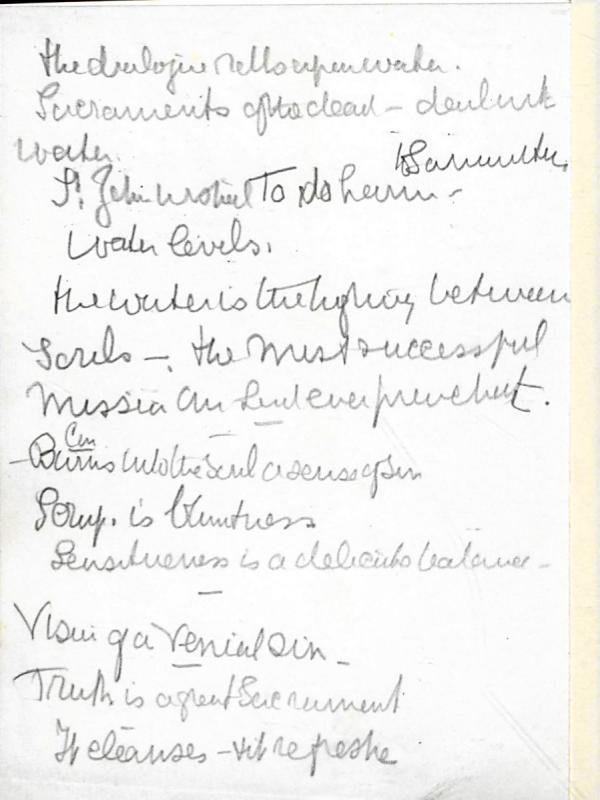 the dialogue rests upon water.
Sacraments of the dead – drink
water
to Samaritan.
St. John To do harm –
Water levels.
the water is the between
Souls – the most successful
Messian ever preached.
Can
– Burns into the Soul a sense of sin
Scrup. is bluntness
Sensitiveness is a delicate balance –
Vision of a Venial Sin –
Truth is a great Sacrament
It cleanses – + it refreshes